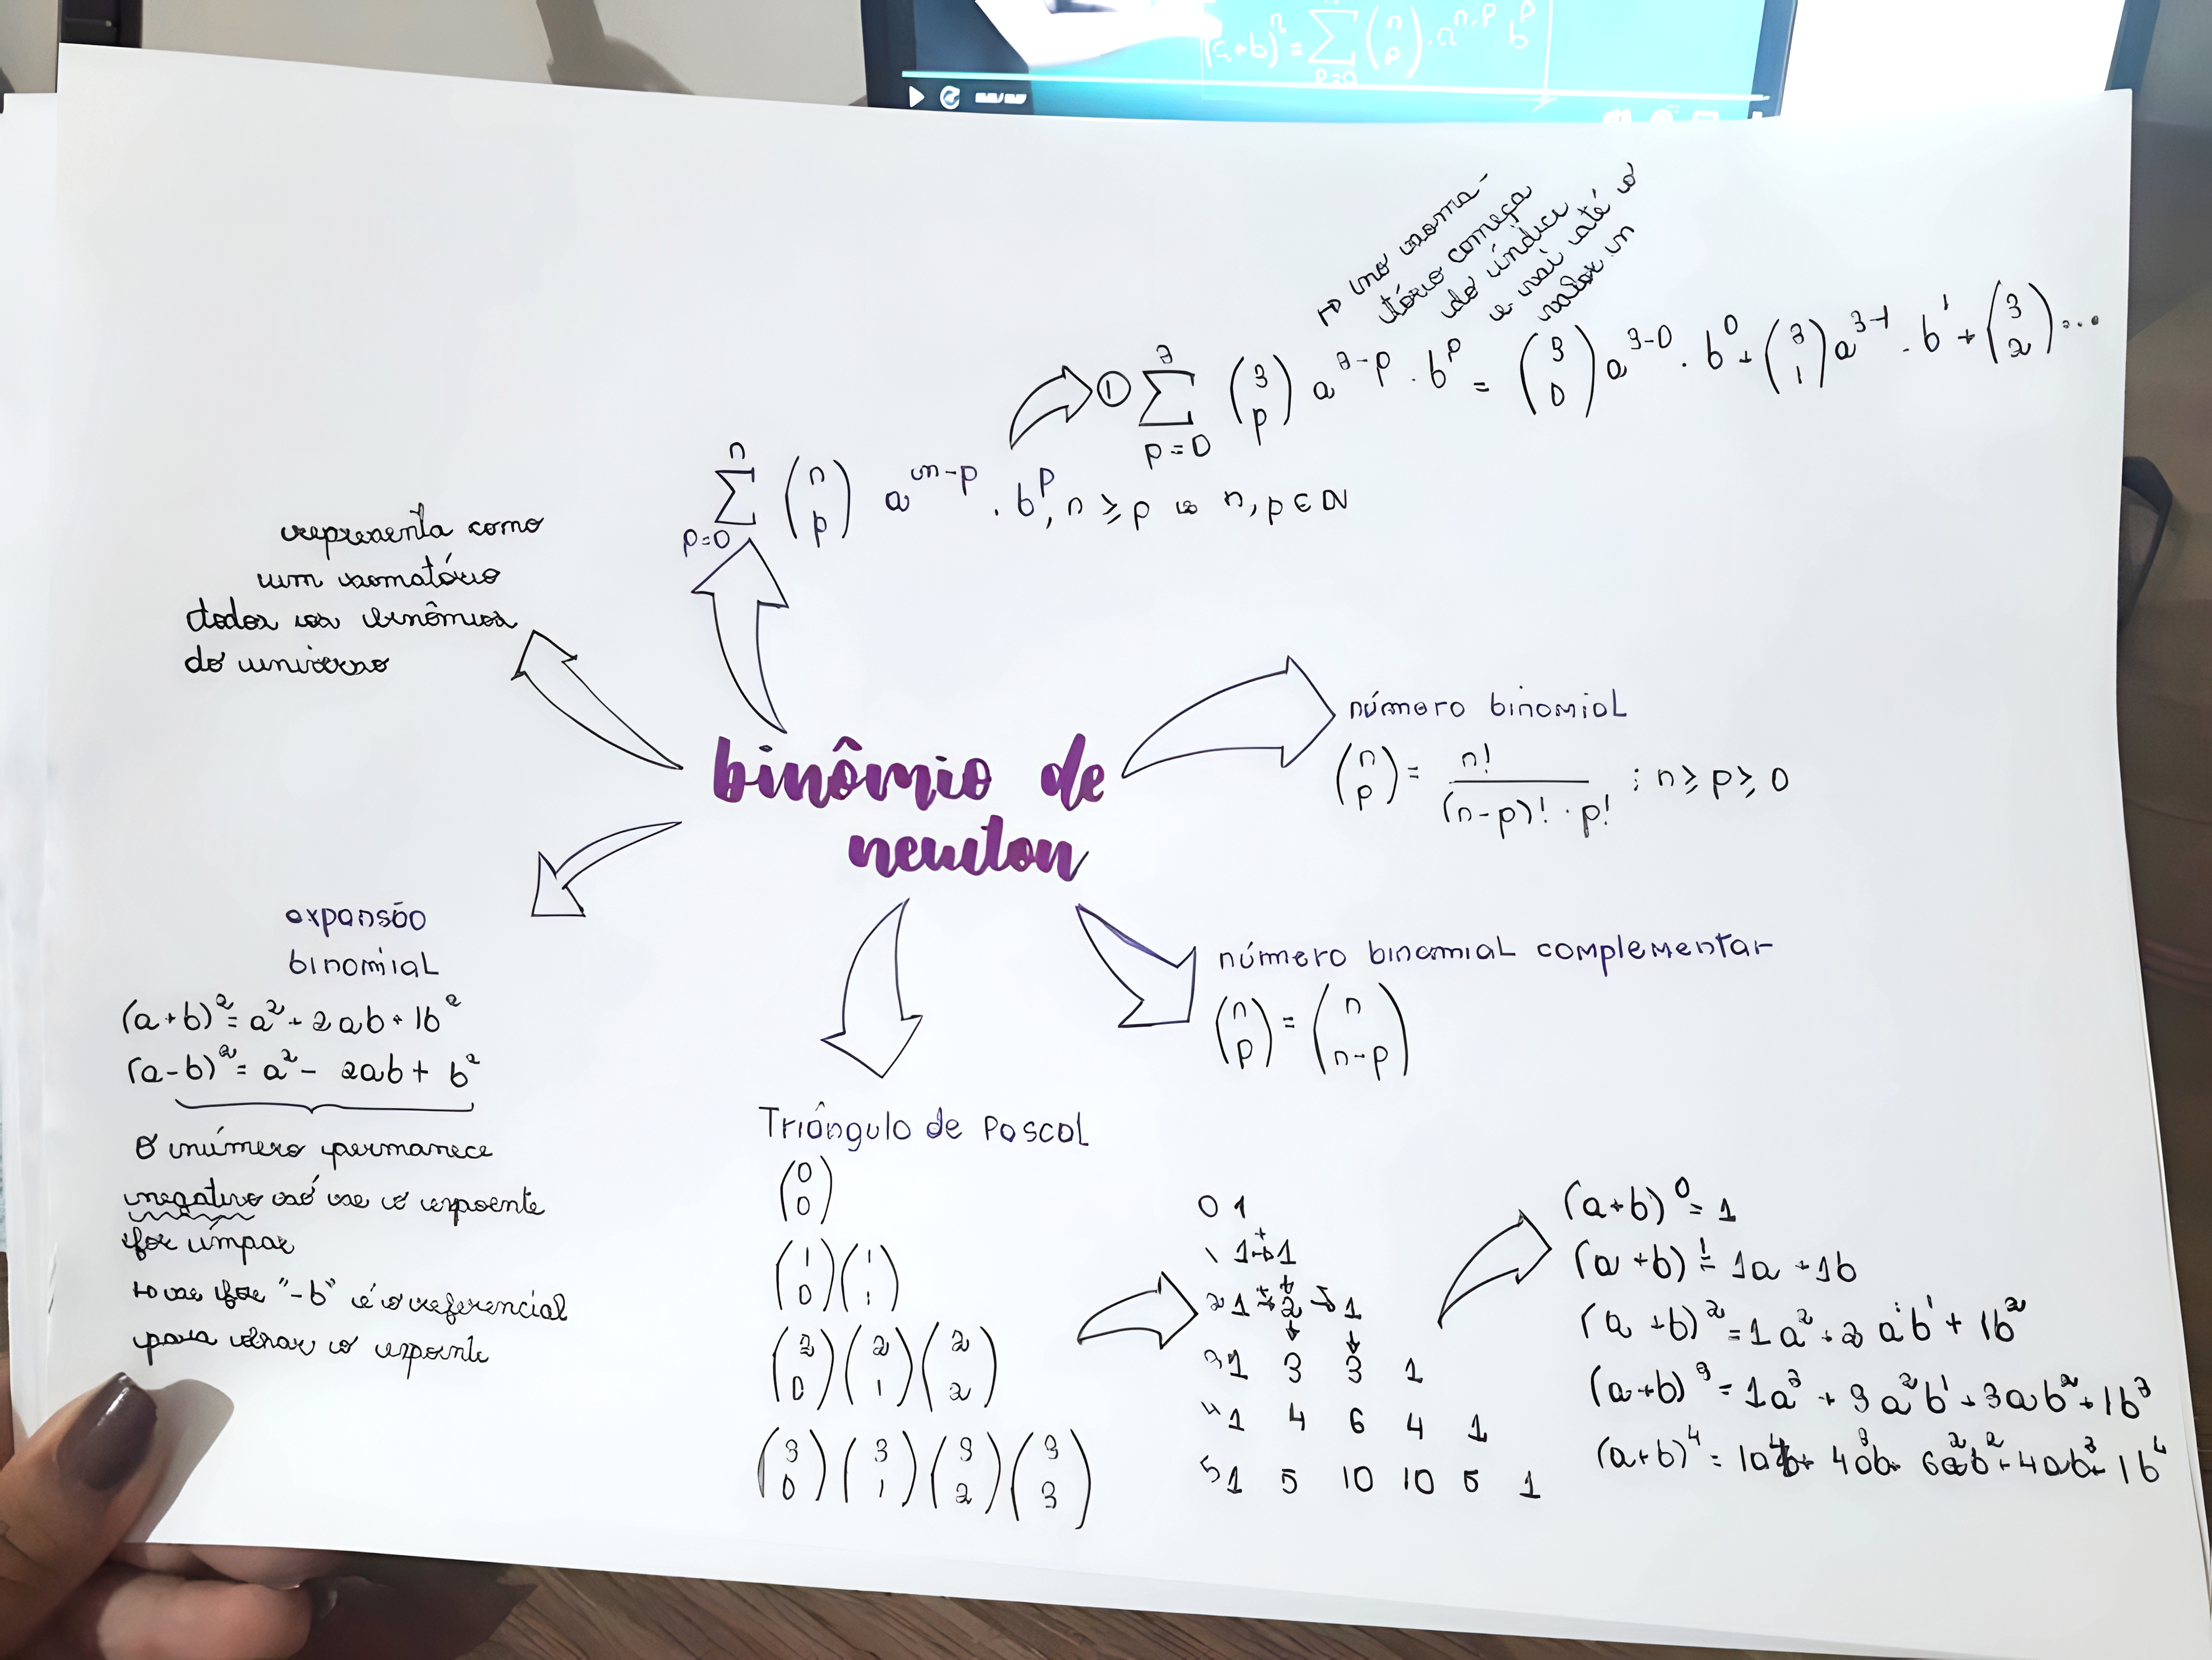 (a+b)ⁿ = ∑ p=0 n (n p) . aⁿ⁻ᵖ bᵖ
↦ no soma-
tório começa
do índice
e vai até o
valor n
① ∑ p=0 3 (3 p) a³⁻ᵖ . bᵖ = (3 0) a³⁻⁰ . b⁰ + (3 1) a³⁻¹ . b¹ + (3 2) ...
∑ p=0 n (n p) aⁿ⁻ᵖ . bᵖ, n ≥ p e n, p ∈ N
representa como
um somatório
todos os binômios
do universo
binômio de
newton
número binomial
(n p) = n! / (n-p)! · p! ; n ≥ p ≥ 0
número binomial complementar
(n p) = (n n-p)
expansão
binomial
(a+b)² = a² + 2ab + 1b²
(a-b)² = a² - 2ab + b²
O número permanece
negativo só se o expoente
for ímpar
↦ se for "-b" é o referencial
para olhar o expoente
Triângulo de Pascal
(0 0)
(1 0) (1 1)
(2 0) (2 1) (2 2)
(3 0) (3 1) (3 2) (3 3)
0 1
1 1 + 1
2 1 + 2 + 1
3 1 3 3 1
4 1 4 6 4 1
5 1 5 10 10 5 1
(a+b)⁰ = 1
(a+b)¹ = 1a + 1b
(a+b)² = 1a² + 2a¹b¹ + 1b²
(a+b)³ = 1a³ + 3a²b¹ + 3ab² + 1b³
(a+b)⁴ = 1a⁴ + 4a³b + 6a²b² + 4ab³ + 1b⁴